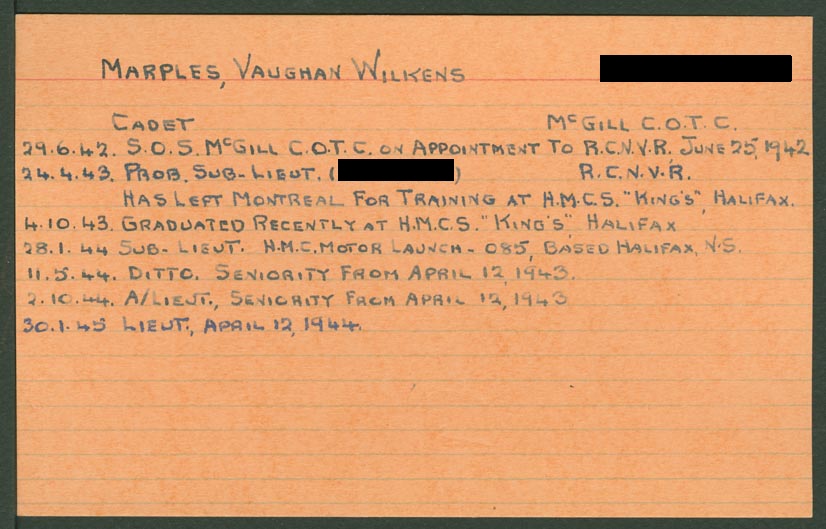 MARPLES, VAUGHAN WILKENS
CADET McGILL C.O.T.C.
29.6.42. S.O.S. McGILL C.O.T.C. ON APPOINTMENT TO R.C.N.V.R. JUNE 25, 1942
24.4.43. PROB. SUB-LIEUT. ( ) R.C.N.V.R.
HAS LEFT MONTREAL FOR TRAINING AT H.M.C.S. "KING'S", HALIFAX.
4.10.43. GRADUATED RECENTLY AT H.M.C.S. "KING'S", HALIFAX
28.1.44 SUB-LIEUT. H.M.C. MOTOR LAUNCH - 085, BASED HALIFAX, N.S.
11.5.44. DITTO. SENIORITY FROM APRIL 12, 1943.
2.10.44. A/LIEUT., SENIORITY FROM APRIL 12, 1943
30.1.45 LIEUT., APRIL 12, 1944.